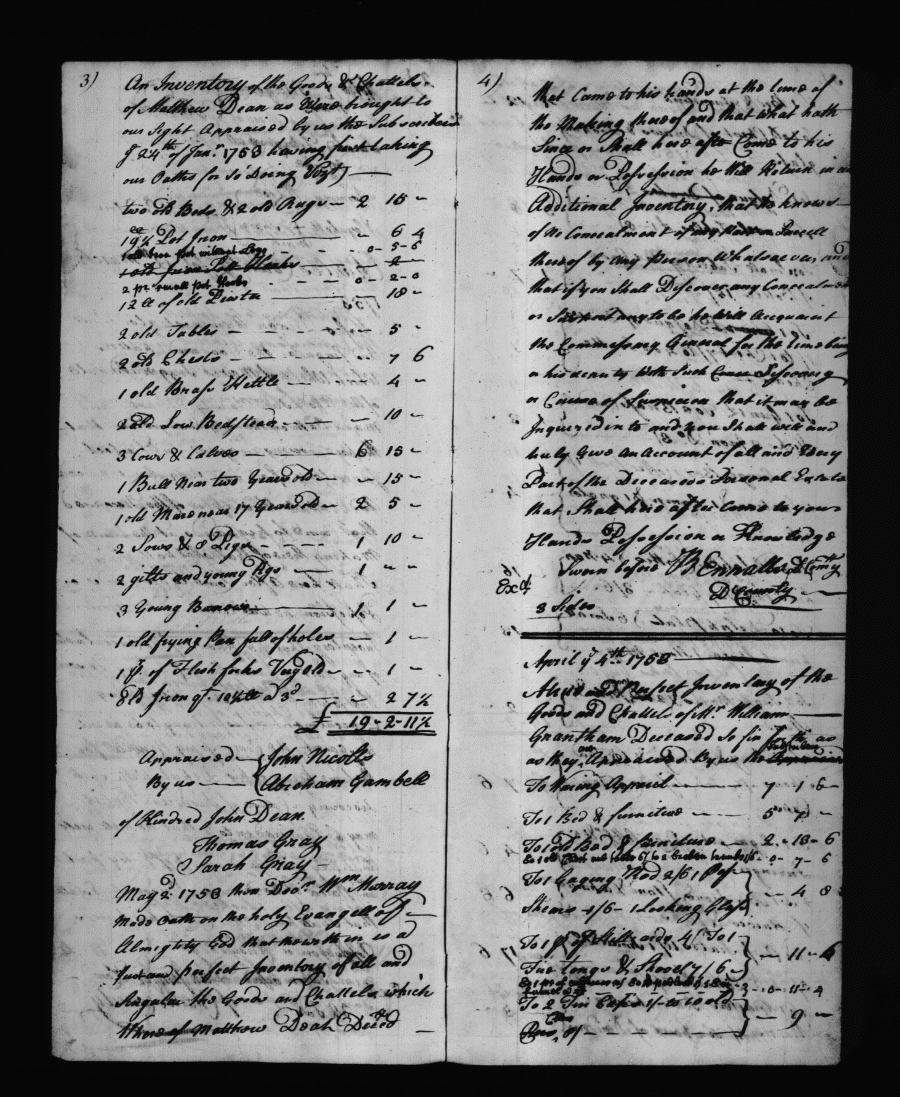 3)
An Inventory of the Goods & Chattels
of Matthew Dean as Were brought to
our Sight Appraised by us the Subscribers
ye 24th of Janr. 1753 having first taking
our Oaths for So Doing Vizt
two old Beds & 2 old Rugs 2 15 -
19 ½ Pot Iron 6 4
pot without Legs 0-5-6
2 pr small pot Hooks 0-2-0
12 lb of old Pewter 18 -
2 old Tables 5 -
2 old Chests 7 6
1 old Brass Kettle 4 -
2 old Low Bedstead 10 -
3 Cows & Calves 6 15 -
1 Bull Near two Years old 15 -
1 old Mare near 17 Years old 2 5 -
2 Sows & 8 Pigs 1 10 -
2 gilts and young Pigs 1 - -
3 Young Barrows 1 1 -
1 old frying Pan full of holes 1 -
1 pr. of Flesh forks Very old 1 -
old Iron qt. 10½ lb a 3d 2 7½
£ 19-2-11½
Appraised John Nicolls
By us Abraham Gambell
of Kindred John Dean
Thomas Gray
Sarah Gray
May 2d 1753 then Wm Murray
Made Oath on the holy Evangells of
Almighty God that the within is a
Just and perfect Inventory of all and
Singular the Goods and Chattels which
Were of Matthew Dean Deced
4)
that Came to his hands at the time of
the Making thereof and that what hath
Since or Shall here after Come to his
Hands or Possession he Will Return in an
Additional Inventory, that he knows
of no Concealment of any Part or Parcell
thereof by any person Whatsoever, and
that if you Shall Discover any Concealment
or Suspect any to be he Will Acquaint
the Commissary General for the time being
or his deputy With Such Discovery
or Cause of Suspicion that it may be
Inquired in to and you Shall well and
truly Give An Account of all and Every
Part of the Deceaseds Personal Estate
that Shall here after Come to your
Hands Possession or Knowledge
Sworn before B Ennalls D Comry
Exd.
D County
3 Sides
April ye 4th 1753
A true and Perfect Inventory of the
Goods and Chattel of Mr. William
Grantham Deceased So far as
as they Appraised By us the
To Waring Apparil 7 1 6
To 1 Bed & furniture 5 -
To 1 old Bed & furniture 2-13-6
0-7-6
To 1 2/6 1
Shears 1/6 - 1 Looking Glass 4 8
To 1 pr of 4/ To 1
Fire tongs & Shovel 7/6 11-6
0-11-4
To 2 Tin to old
9 -